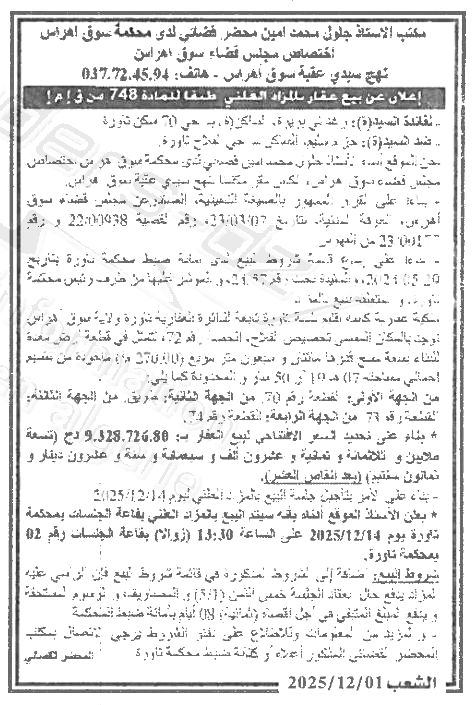 مكتب الاستاذ جلول محمد امين محضر قضائي لدى محكمة سوق اهراس
اختصاص مجلس قضاء سوق اهراس
نهج سيدي عقبة سوق اهراس - هاتف: 037.72.45.94
إعلان عن بيع عقار بالمزاد العلني طبقا للمادة 748 من ق إ م إ
لفائدة السيد(ة): الساكن(ة) بـ حي 70 سكن تاورة
ضد السيد(ة): الساكن بـ حي الفلاح تاورة
نحن الموقع أدناه الأستاذ جلول محمد امين محضر قضائي لدى محكمة سوق اهراس اختصاص
مجلس قضاء سوق اهراس، الكائن مقر مكتبنا نهج سيدي عقبة سوق اهراس
- بناء على القرار الممهور بالصيغة التنفيذية، الصادر عن مجلس قضاء سوق
أهراس، الغرفة المدنية، بتاريخ 23/03/07، رقم القضية 22/00938 و رقم
الفهرس
- بناء على إيداع قائمة شروط البيع لدى أمانة ضبط محكمة تاورة بتاريخ
والمؤشر عليها من طرف رئيس محكمة
تاورة، و المتعلقة ببيع العقار
تاورة التابعة للدائرة العقارية تاورة ولاية سوق اهراس
توجد بالمكان المسمى تحصيص الفلاح، الحصة رقم 72، تتمثل في قطعة أرض معدة
للبناء مسح قدرها مائتان و سبعون متر مربع (270.00 م) مأخوذة من مجموع
إجمالي مساحته 07 هـ 19 آر 50 سار و المحدودة كما يلي:
من الجهة الأولى: القطعة رقم 70، من الجهة الثانية: طريق، من الجهة الثالثة:
القطعة رقم 73، من الجهة الرابعة: القطعة رقم 74
* بناء على تحديد السعر الافتتاحي لبيع العقار بـ: 9.328.726.80 دج (تسعة
ملايين و ثلاثمائة و ثمانية و عشرون ألف و سبعمائة و ستة و عشرون دينار و
ثمانون سنتيم) (بعد إنقاص العشر).
- بناء على الأمر بتأجيل جلسة البيع بالمزاد العلني ليوم 2025/12/14
* يعلن الأستاذ الموقع أعلاه بأنه سيتم البيع بالمزاد العلني بقاعة الجلسات بمحكمة
تاورة يوم 2025/12/14 على الساعة 13:30 (زوالا) بقاعة الجلسات رقم 02
بمحكمة تاورة.
شروط البيع: إضافة إلى الشروط المذكورة في قائمة شروط البيع فإن الراسي عليه
المزاد يدفع حال انعقاد الجلسة خمس الثمن (5/1) و المصاريف و الرسوم المستحقة
و يدفع المبلغ المتبقي في أجل أقصاه (ثمانية) 08 أيام بأمانة ضبط المحكمة
- و للمزيد من المعلومات وللاطلاع على دفتر الشروط يرجى الاتصال بمكتب
المحضر القضائي المذكور أعلاه أو كتابة ضبط محكمة تاورة
المحضر القضائي
الشعب 2025/12/01